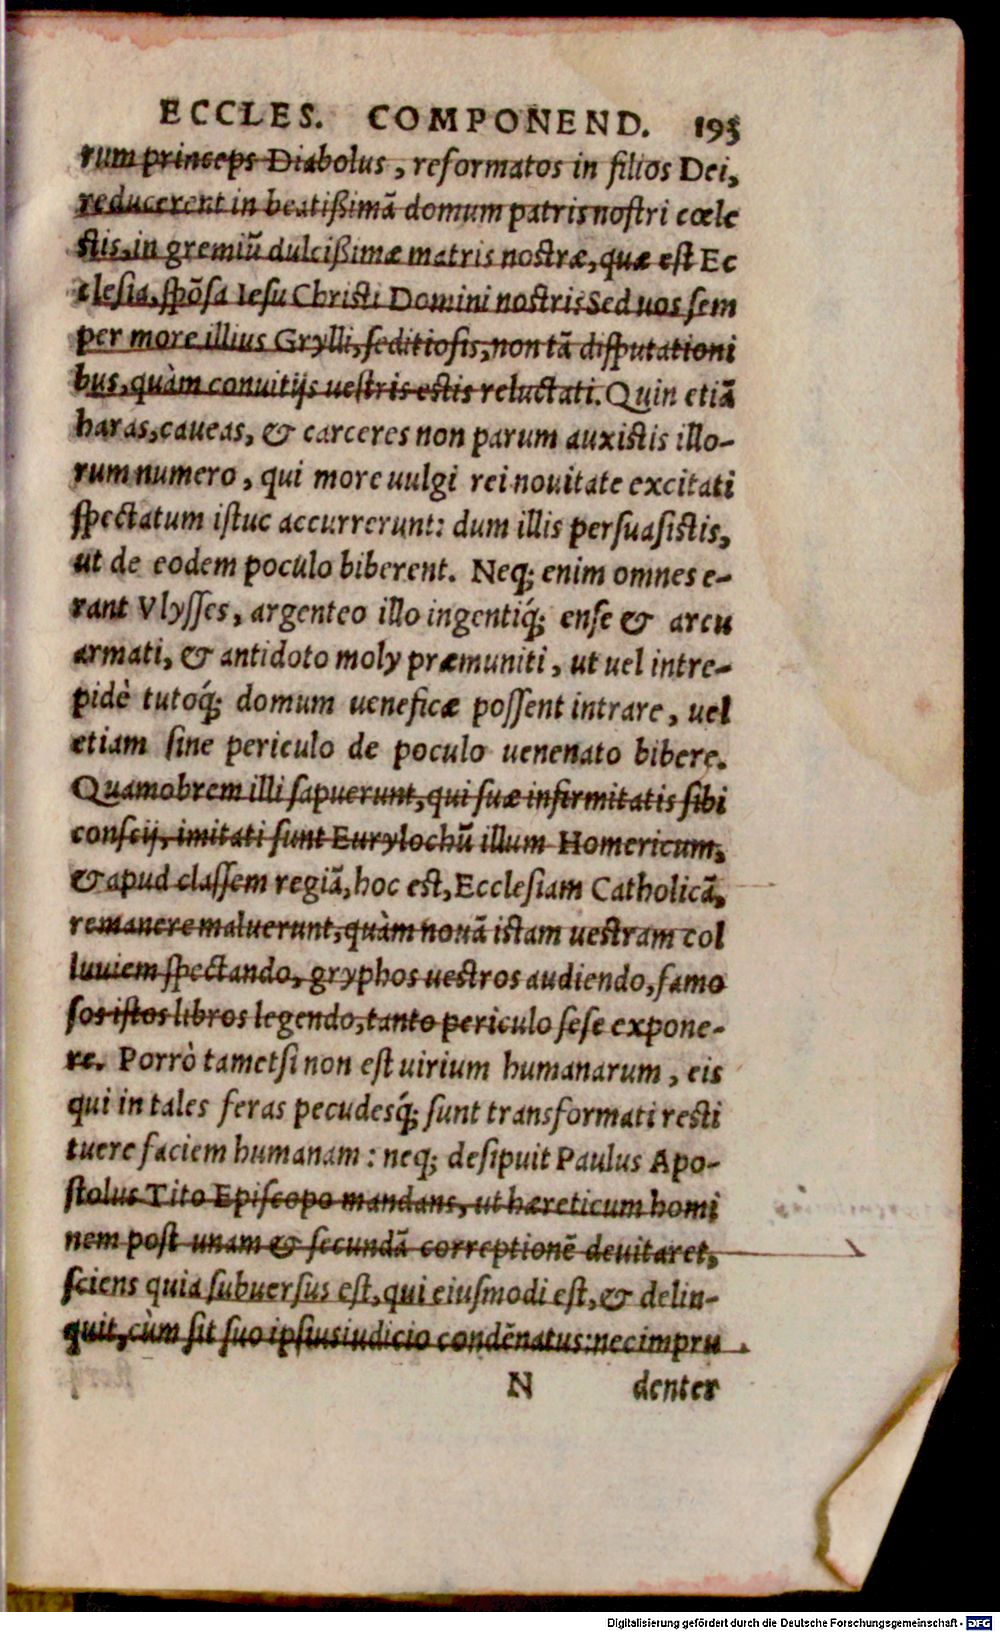 ECCLES. COMPONEND. 193
rum princeps Diabolus, reformatos in filios Dei,
reducerent in beatißimā domum patris nostri cœle
stis, in gremiū dulcißimæ matris nostræ, quæ est Ec
clesia, spōsa Iesu Christi Domini nostri: Sed uos sem
per more illius Grylli, seditiosis, non tā disputationi
bus, quàm conuitijs uestris estis reluctati. Quin etiā
haras, caueas, & carceres non parum auxistis illo-
rum numero, qui more uulgi rei nouitate excitati
spectatum istuc accurrerunt: dum illis persuasistis,
ut de eodem poculo biberent. Neq; enim omnes e-
rant Vlysses, argenteo illo ingentiq́; ense & arcu
armati, & antidoto moly præmuniti, ut uel intre-
pidè tutoq́; domum ueneficæ possent intrare, uel
etiam sine periculo de poculo uenenato bibere.
Quamobrem illi sapuerunt, qui suæ infirmitatis sibi
conscij, imitati sunt Eurylochū illum Homericum,
& apud classem regiā, hoc est, Ecclesiam Catholicā,
remanere maluerunt, quàm nouā istam uestram col
luuiem spectando, gryphos uestros audiendo, famo
sos istos libros legendo, tanto periculo sese expone-
re. Porrò tametsi non est uirium humanarum, eis
qui in tales feras pecudesq́; sunt transformati resti
tuere faciem humanam: neq; desipuit Paulus Apo-
stolus Tito Episcopo mandans, ut hæreticum homi
nem post unam & secundā correptionē deuitaret,
sciens quia subuersus est, qui eiusmodi est, & delin-
quit, cùm sit suo ipsius iudicio condēnatus: nec impru
N denter
Digitalisierung gefördert durch die Deutsche Forschungsgemeinschaft - DFG